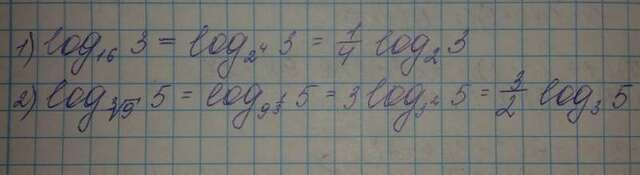 1) log₁₆ 3 = log_{2⁴} 3 = 1/4 log₂ 3
2) log_{∛9} 5 = log_{9^{1/3}} 5 = 3 log_{3²} 5 = 3/2 log₃ 5